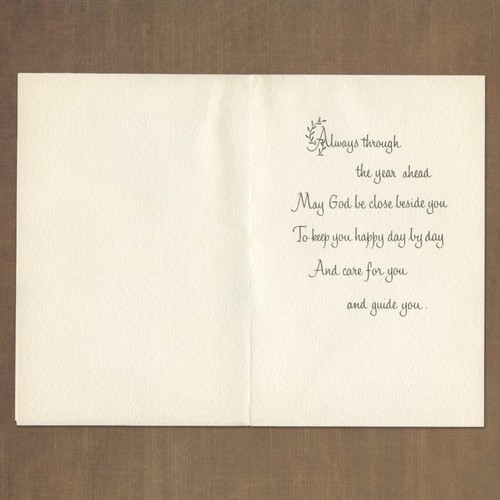 Always through
the year ahead
May God be close beside you
To keep you happy day by day
And care for you
and guide you.